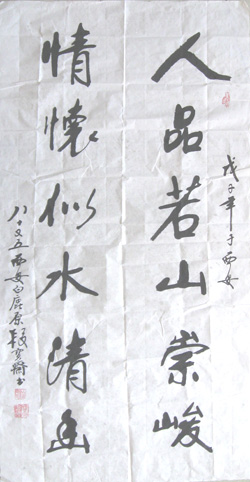 人品若山崇峻
戊子年于西安
情懷似水清幽
八十又五西安白鹿原段
书